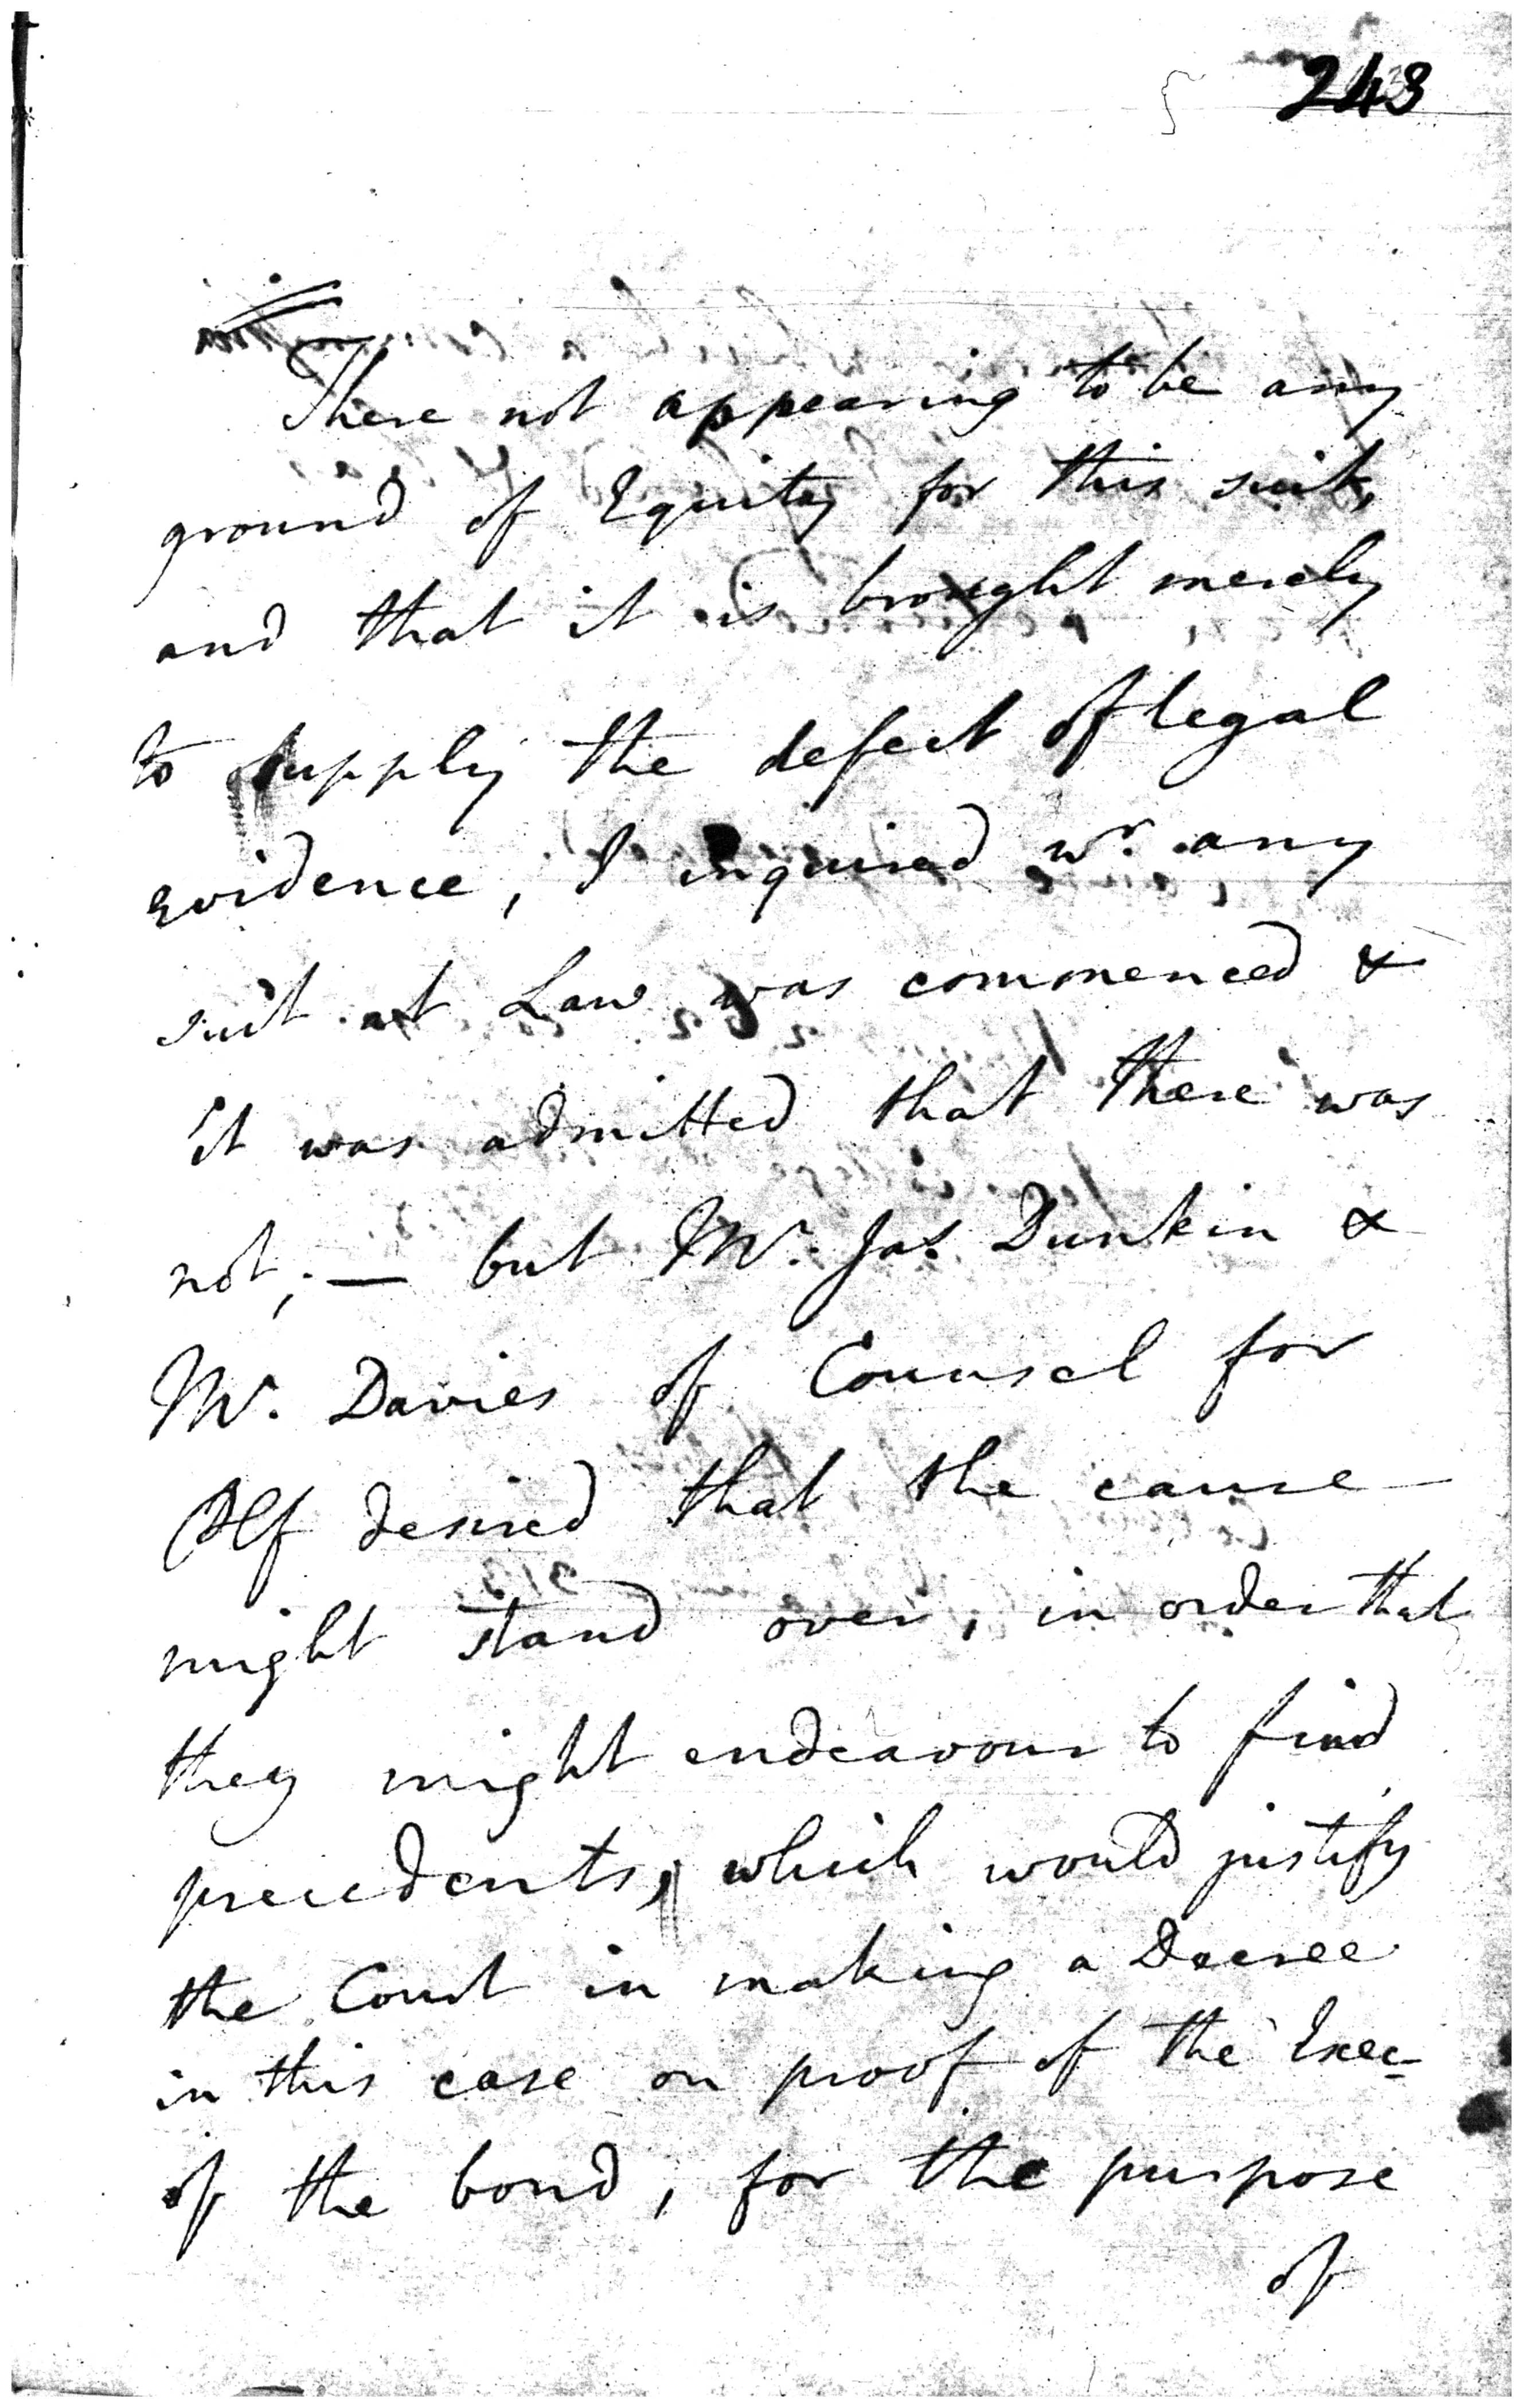 243
There not appearing to be any
ground of Equity for this suit,
and that it is brought merely
to supply the defect of legal
evidence, I inquired wr. any
suit at Law was commenced &
it was admitted that there was
not; — but Mr. Jas Dunkin &
Mr. Davies of Counsel for
Plf desired that the cause
might stand over, in order that
they might endeavour to find
precedents, which would justify
the Court in making a Decree
in this case on proof of the Exec-
of the bond, for the purpose
of